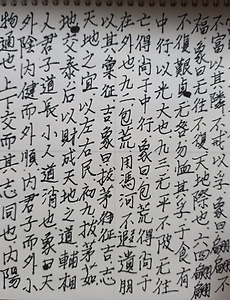 物通也上下交而其志同也內陽
外陰內健而外順內君子而外小
人君子道長小人道消也象曰天
地交泰后以財成天地之道輔相
天地之宜以左右民初九拔茅茹
以其彙征吉象曰拔茅征吉志
在外也九二包荒用馮河不遐遺朋
亡得尚于中行象曰包荒得尚于
中行以光大也九三无平不陂无往
不復艱貞无咎勿恤其孚于食有
福象曰无往不復天地際也六四翩翩
不富以其鄰不戒以孚象曰翩翩不